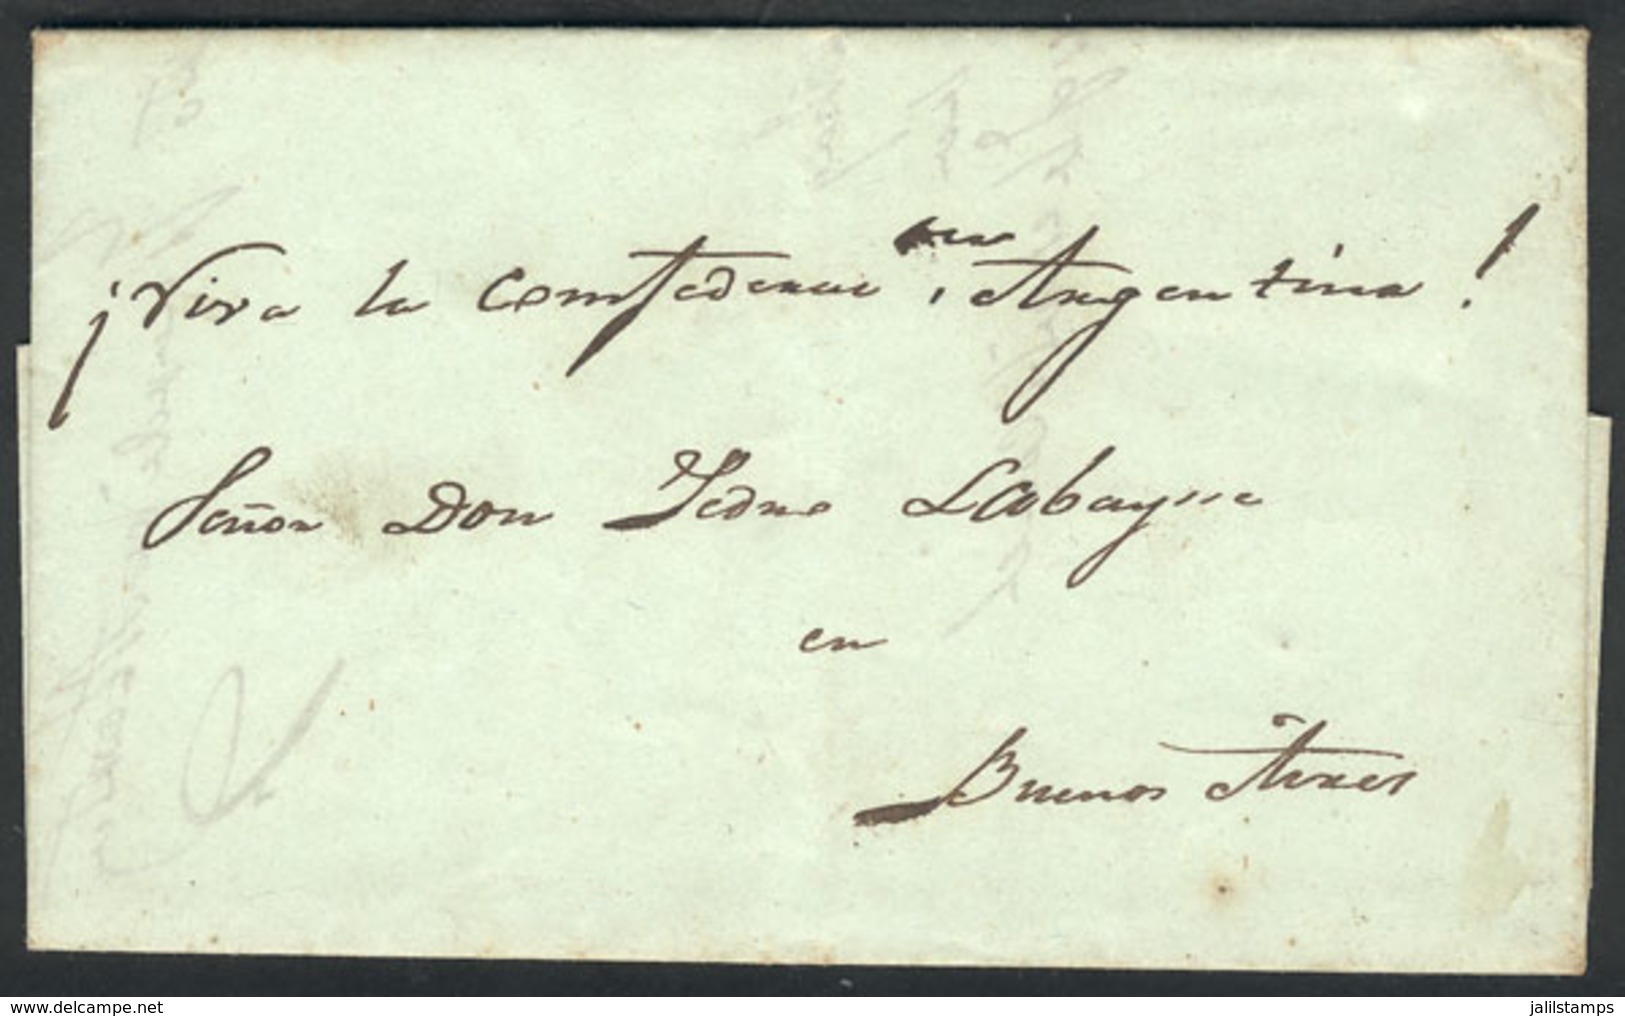 ¡Viva la Confederac.on Argentina!
Señor Don Pedro Labayne
en
Buenos Aires
www.delcampe.net
jalilstamps